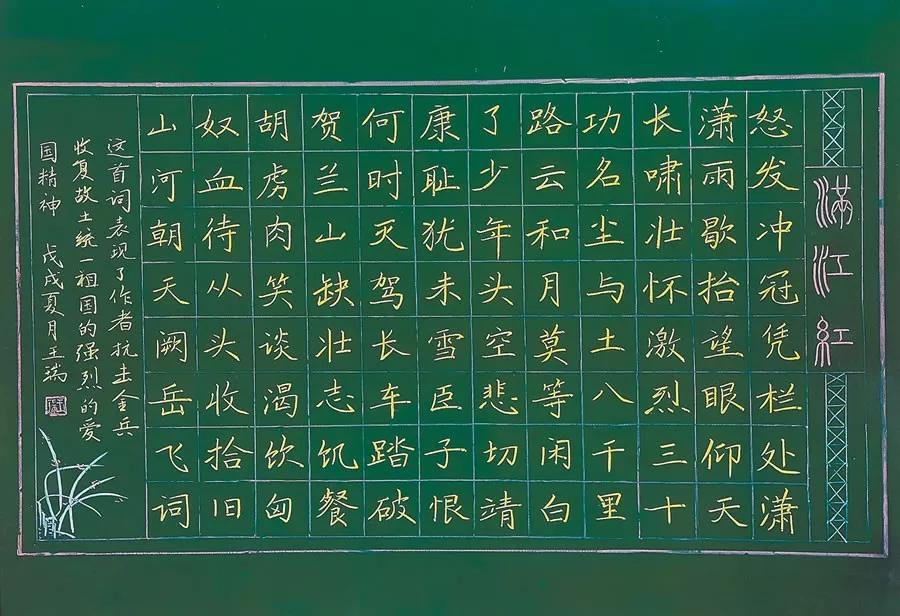 滿江紅
怒发冲冠凭栏处潇
潇雨歇抬望眼仰天
长啸壮怀激烈三十
功名尘与土八千里
路云和月莫等闲白
了少年头空悲切靖
康耻犹未雪臣子恨
何时灭驾长车踏破
贺兰山缺壮志饥餐
胡虏肉笑谈渴饮匈
奴血待从头收拾旧
山河朝天阙岳飞词
这首词表现了作者抗击金兵
收复故土统一祖国的强烈的爱
国精神 戊戌夏月王瑞